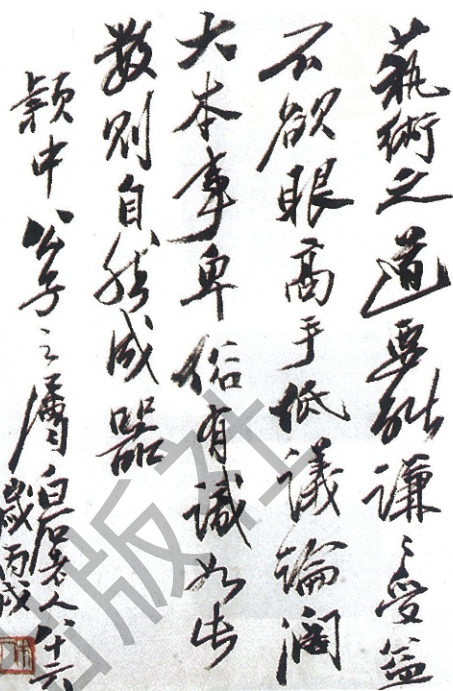 藝術之道要能謙〻受益
不欲眼高手低議論闊
大本事卑俗有識如此
數則自然成器
穎中公子之屬
白石老人八十六
歲丙戌
版社